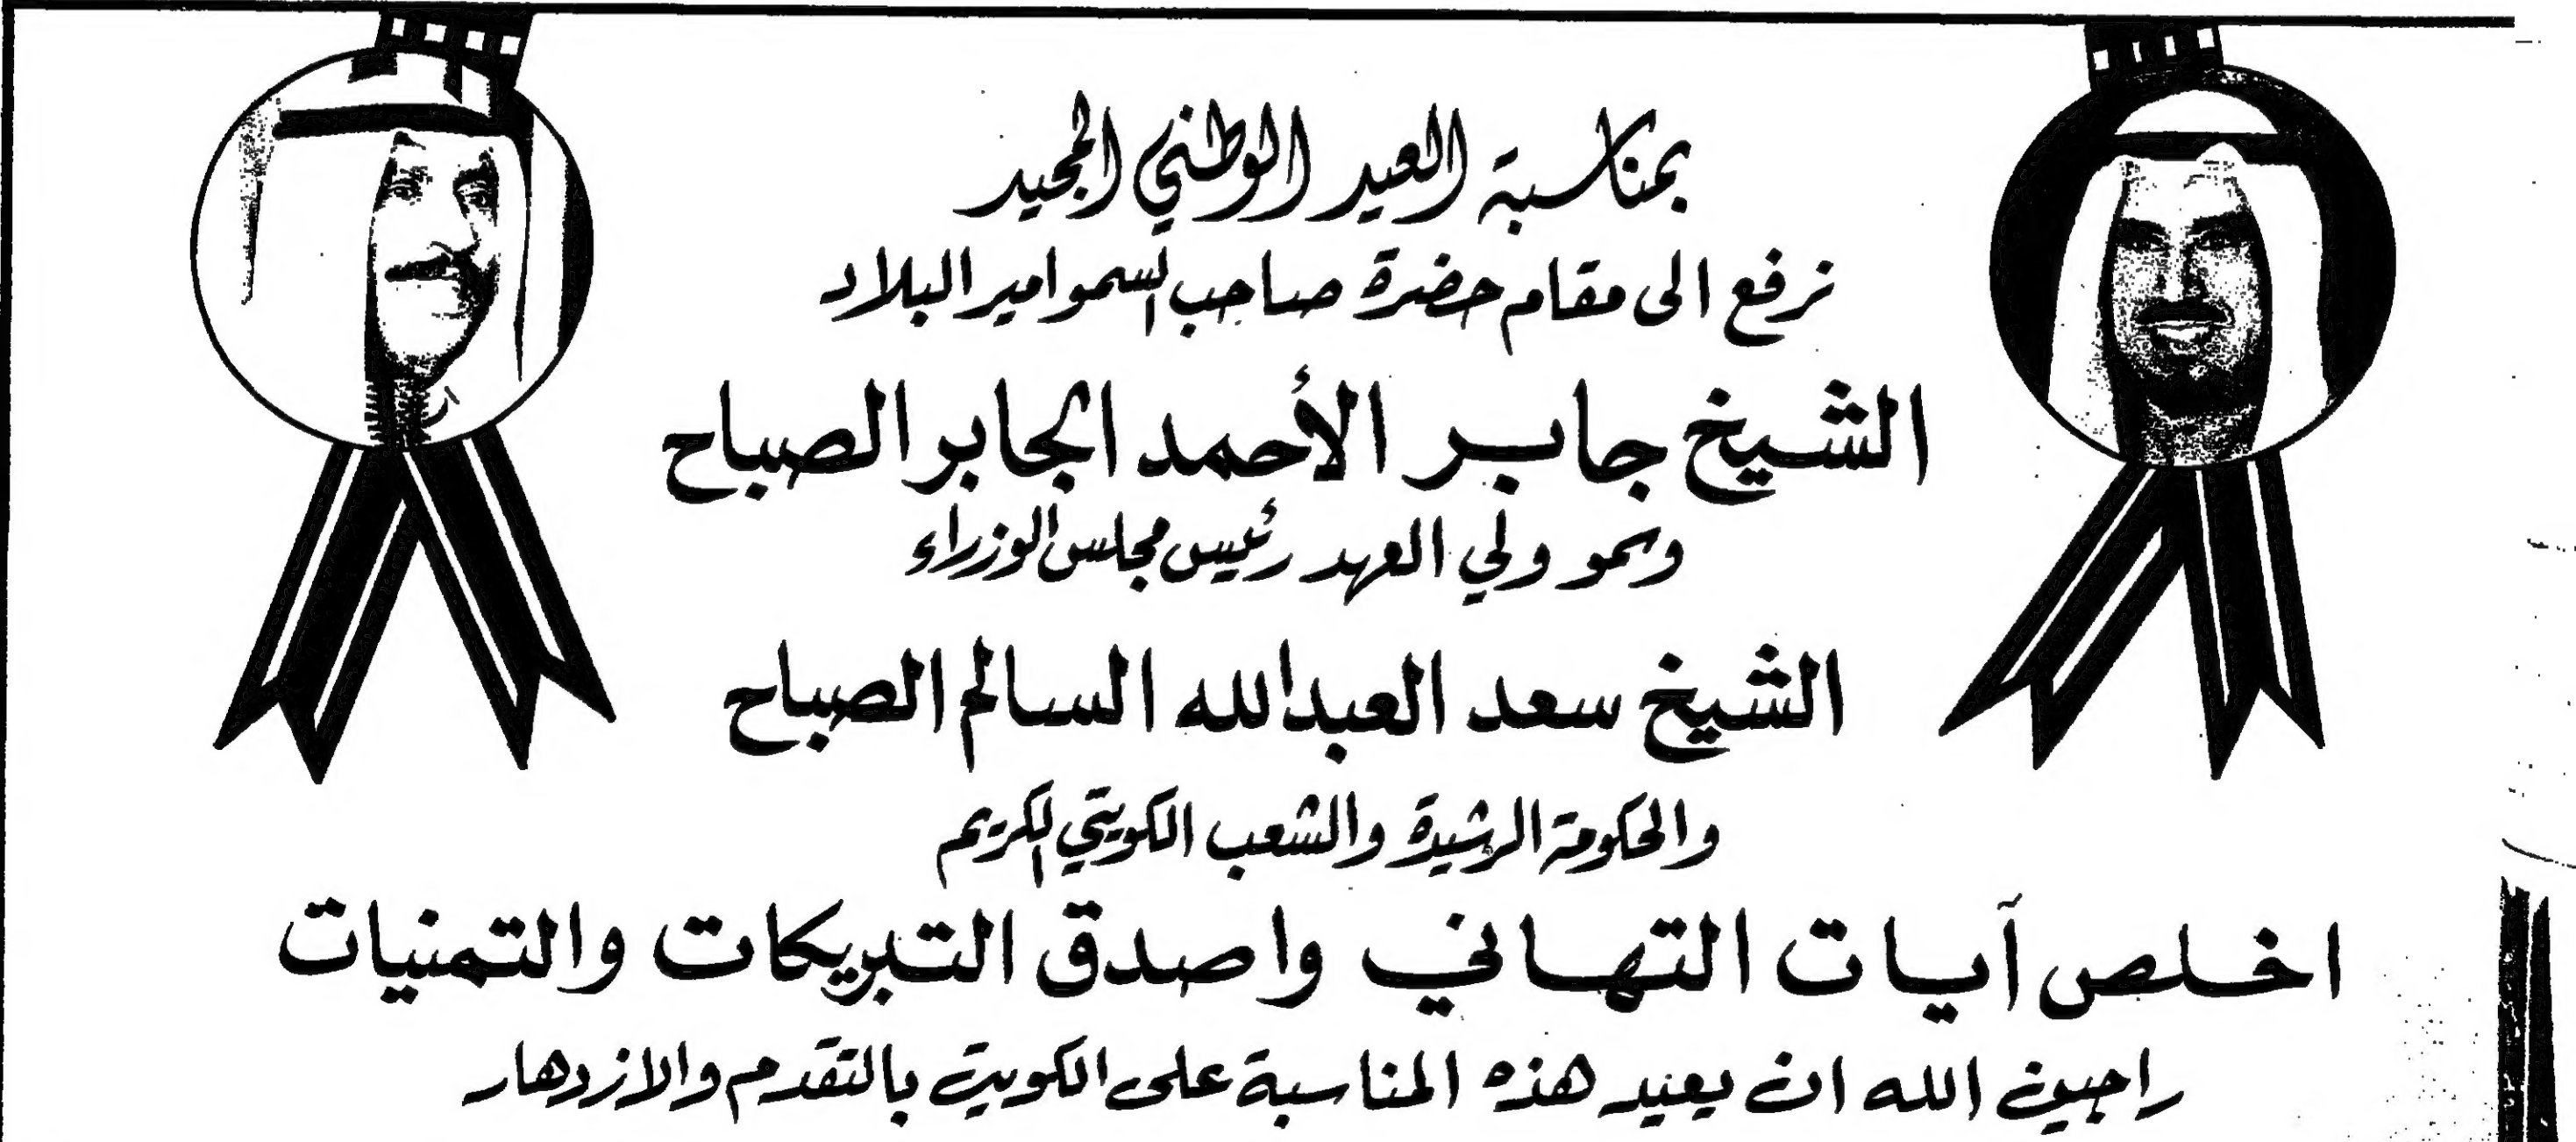 بمناسبة العيد الوطني المجيد
نرفع الى مقام حضرة صاحب السمو امير البلاد
الشيخ جابر الأحمد الجابر الصباح
وسمو ولي العهد رئيس مجلس الوزراء
الشيخ سعد العبدالله السالم الصباح
والحكومة الرشيدة والشعب الكويتي الكريم
اخلص آيات التهاني واصدق التبريكات والتمنيات
راجين الله ان يعيد هذه المناسبة على الكويت بالتقدم والازدهار